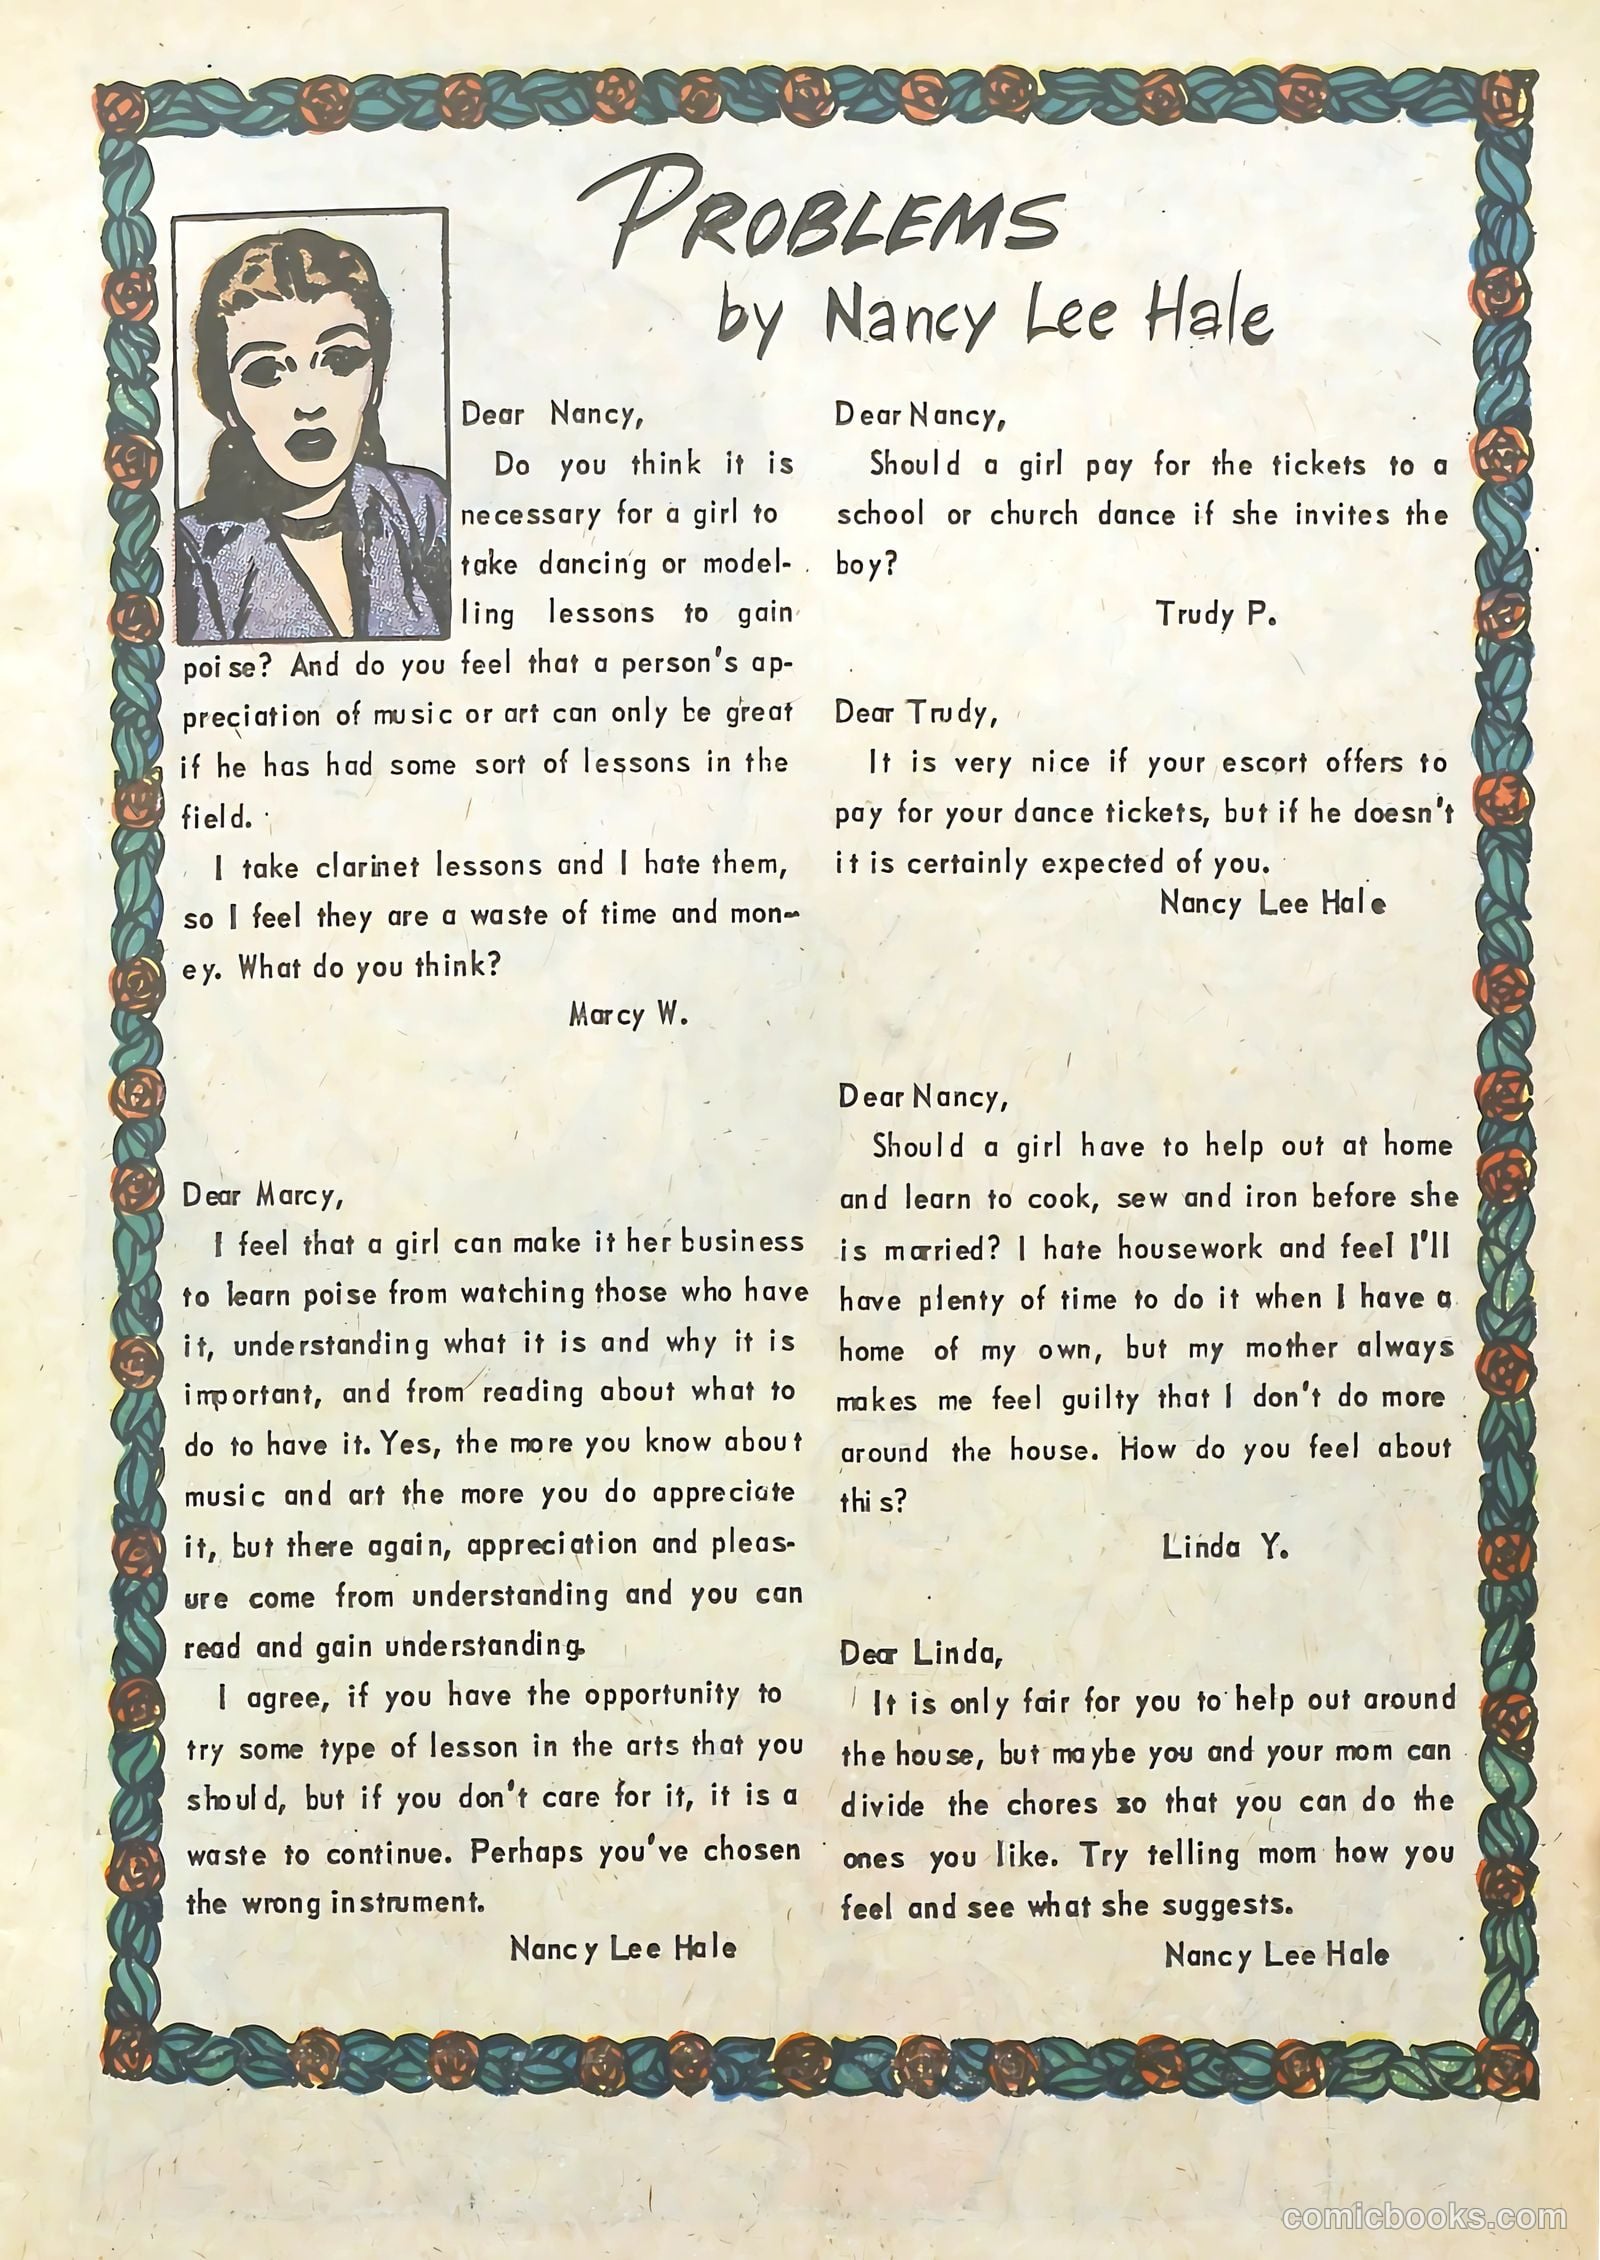 PROBLEMS
by Nancy Lee Hale
Dear Nancy,
Do you think it is
necessary for a girl to
take dancing or model-
ling lessons to gain
poise? And do you feel that a person's ap-
preciation of music or art can only be great
if he has had some sort of lessons in the
field.
I take clarinet lessons and I hate them,
so I feel they are a waste of time and mon-
ey. What do you think?
Marcy W.
Dear Marcy,
I feel that a girl can make it her business
to learn poise from watching those who have
it, understanding what it is and why it is
important, and from reading about what to
do to have it. Yes, the more you know about
music and art the more you do appreciate
it, but there again, appreciation and pleas-
ure come from understanding and you can
read and gain understanding.
I agree, if you have the opportunity to
try some type of lesson in the arts that you
should, but if you don't care for it, it is a
waste to continue. Perhaps you've chosen
the wrong instrument.
Nancy Lee Hale
Dear Nancy,
Should a girl pay for the tickets to a
school or church dance if she invites the
boy?
Trudy P.
Dear Trudy,
It is very nice if your escort offers to
pay for your dance tickets, but if he doesn't
it is certainly expected of you.
Nancy Lee Hale
Dear Nancy,
Should a girl have to help out at home
and learn to cook, sew and iron before she
is married? I hate housework and feel I'll
have plenty of time to do it when I have a
home of my own, but my mother always
makes me feel guilty that I don't do more
around the house. How do you feel about
this?
Linda Y.
Dear Linda,
It is only fair for you to help out around
the house, but maybe you and your mom can
divide the chores so that you can do the
ones you like. Try telling mom how you
feel and see what she suggests.
Nancy Lee Hale
comicbooks.com